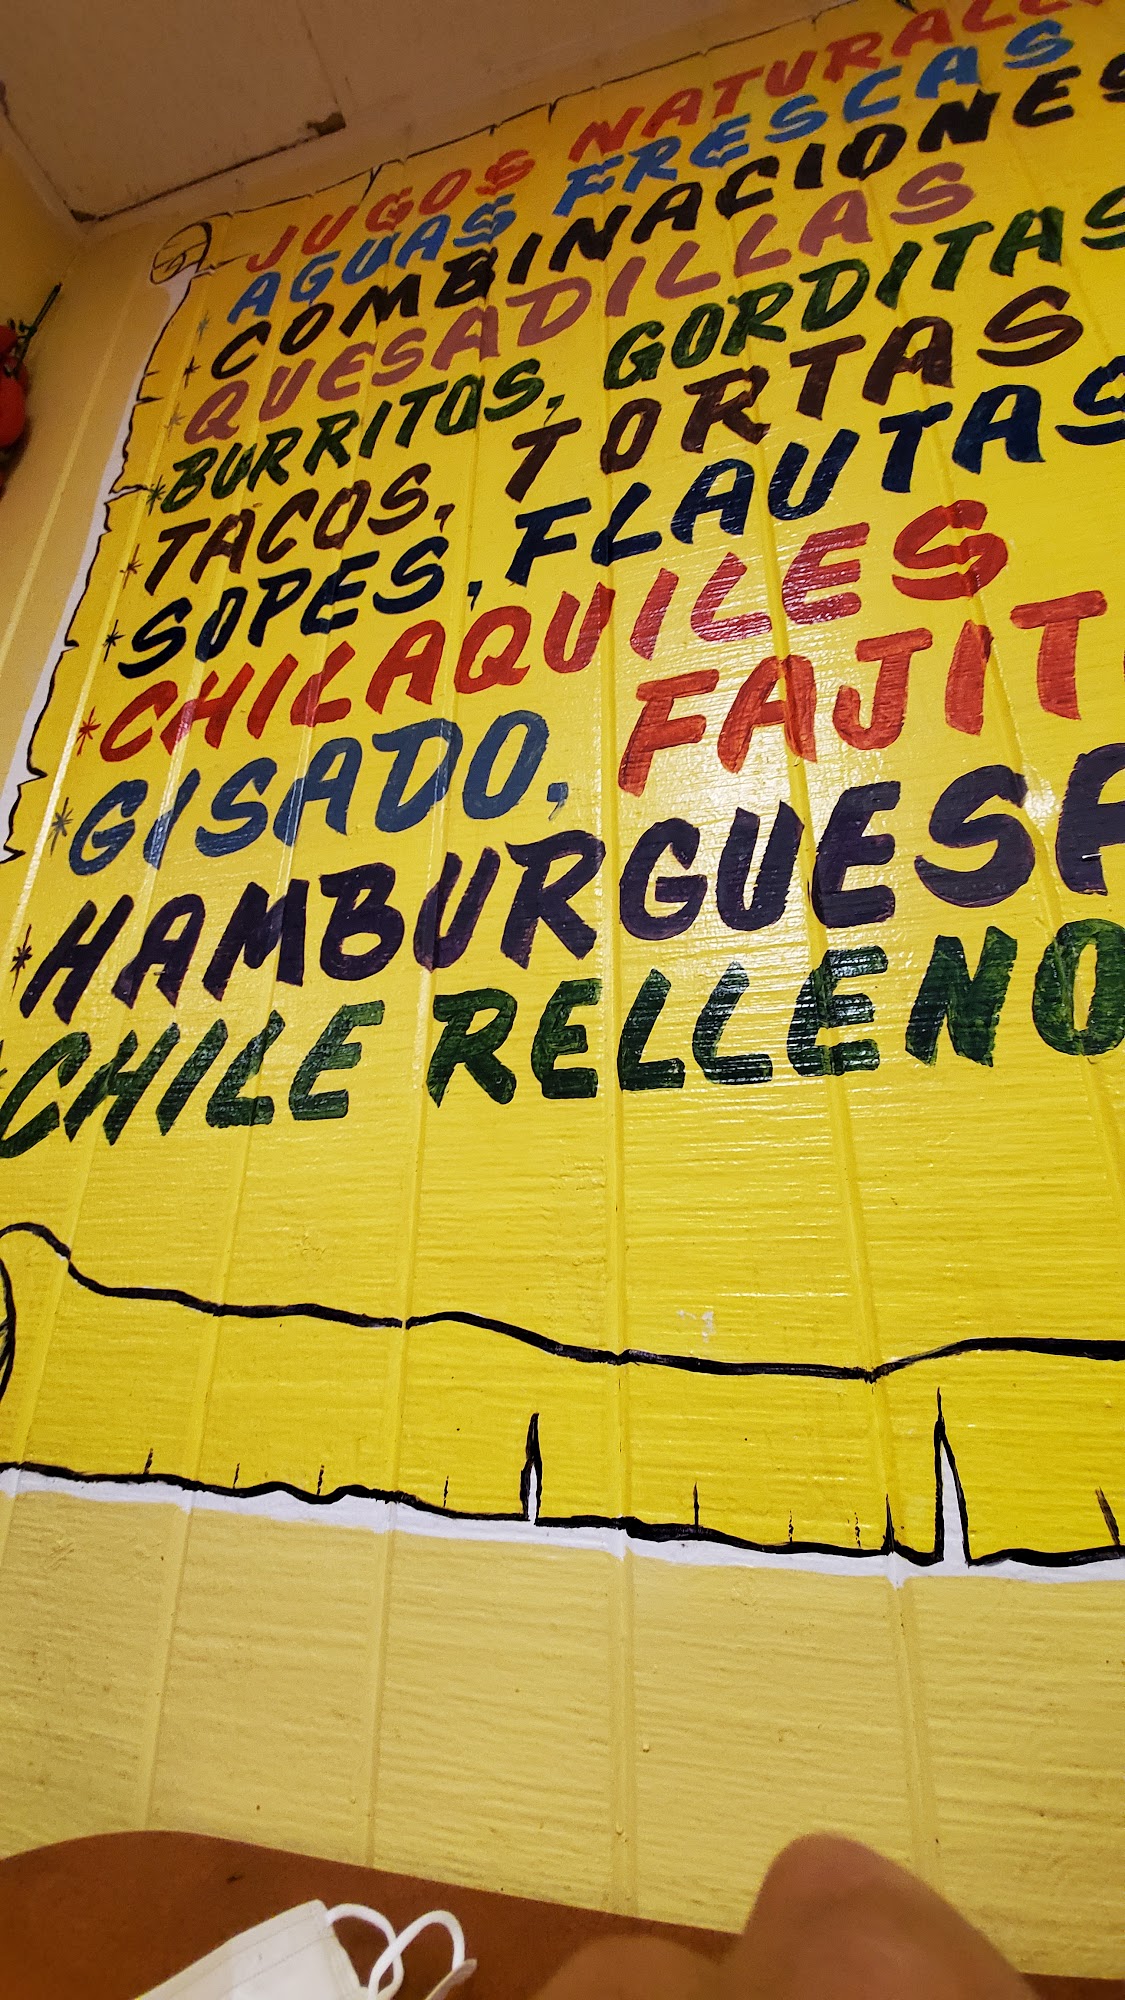 JUGOS NATURALE
* AGUAS FRESCAS
* COMBINACIONES
* QUESADILLAS
* BURRITOS, GORDITAS
* TACOS, TORTAS
* SOPES, FLAUTAS
* CHILAQUILES
* GISADO, FAJIT
* HAMBURGUESA
* CHILE RELLENO